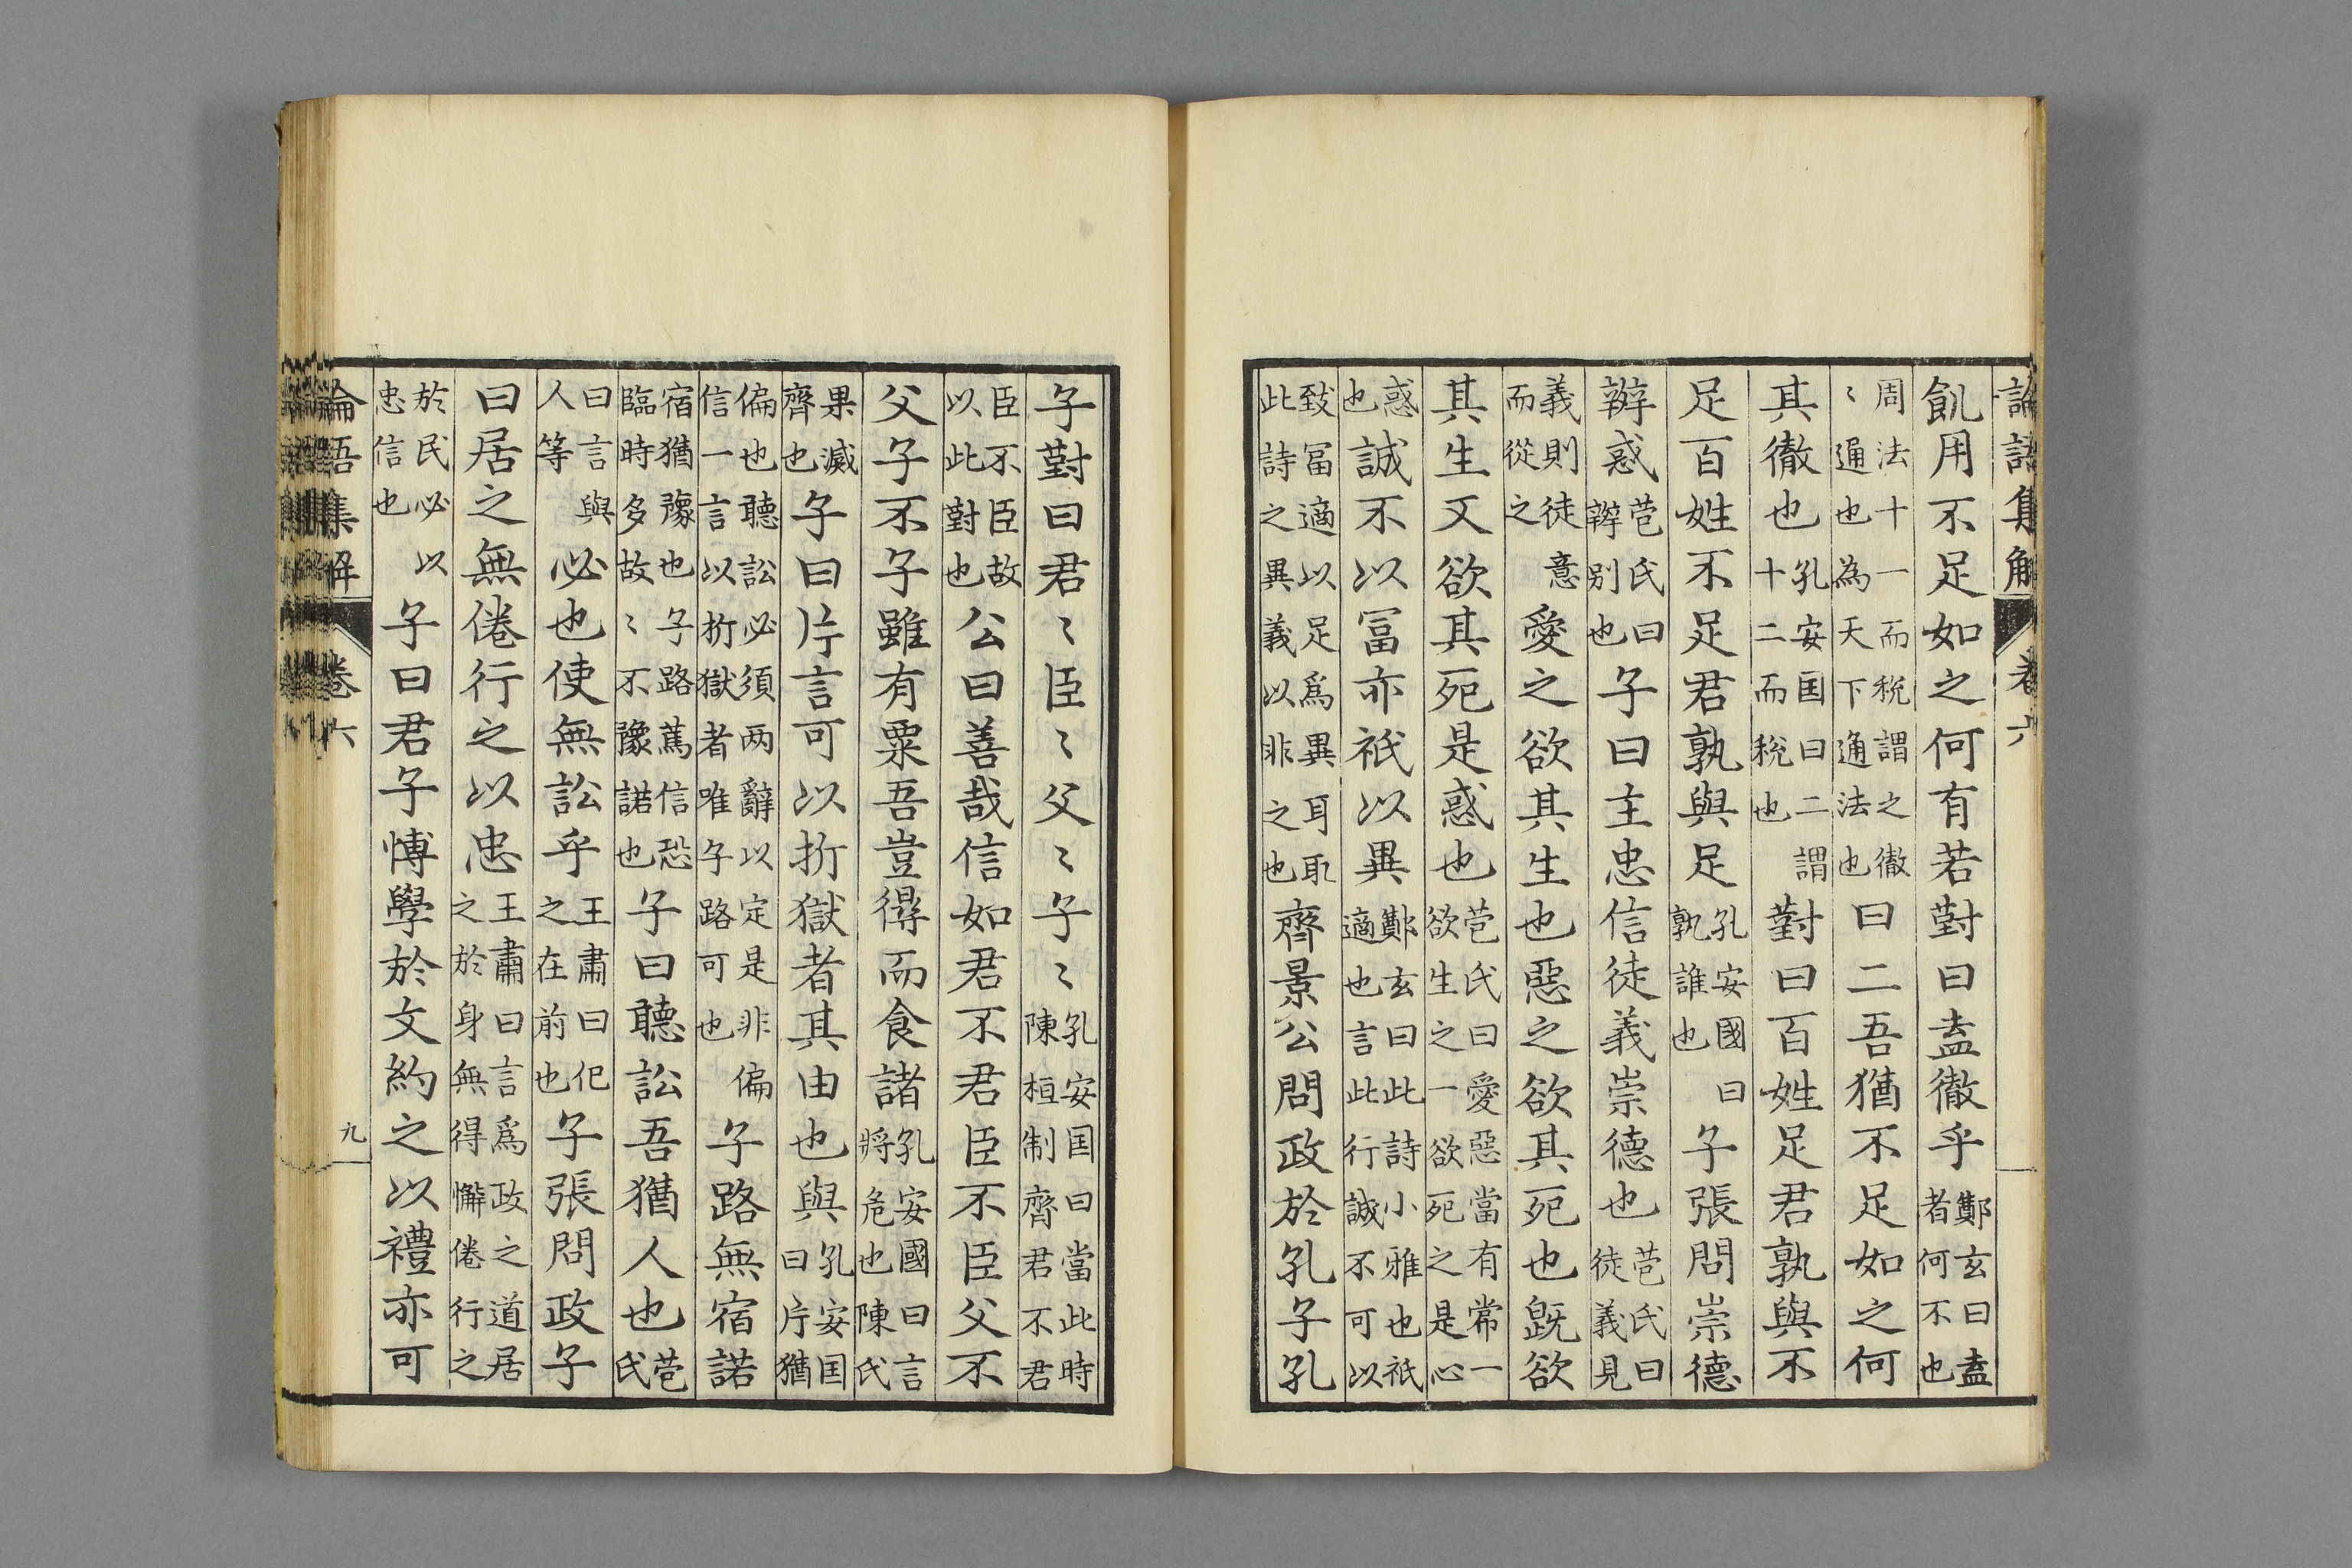 論語集解 卷六
飢用不足如之何有若對曰盍徹乎鄭玄曰盍
者何不也
周法十一而稅謂之徹
〻通也為天下通法也曰二吾猶不足如之何
其徹也孔安国曰二謂
十二而稅也對曰百姓足君孰與不
足百姓不足君孰與足孔安國曰
孰誰也子張問崇德
辨惑苞氏曰
辨别也子曰主忠信徒義崇德也苞氏曰
徒義見
義則徒意
而從之愛之欲其生也惡之欲其死也既欲
其生又欲其死是惑也苞氏曰愛惡當有常一
欲生之一欲死之是心
惑
也誠不以冨亦祇以異鄭玄曰此詩小雅也祇
適也言此行誠不可以
致冨適以足爲異耳取
此詩之異義以非之也齊景公問政於孔子孔
子對曰君〻臣〻父〻子〻孔安国曰當此時
陳桓制齊君不君
臣不臣故
以此對也公曰善哉信如君不君臣不臣父不
父子不子雖有粟吾豈得而食諸孔安國曰言
將危也陳氏
果滅
齊也子曰片言可以折獄者其由也與孔安国
曰片猶
偏也聽訟必須两辭以定是非偏
信一言以折獄者唯子路可也子路無宿諾
宿猶豫也子路萬信恐
臨時多故〻不豫諾也子曰聽訟吾猶人也苞
氏
曰言與
人等必也使無訟乎王肅曰化
之在前也子張問政子
曰居之無倦行之以忠王肅曰言爲政之道居
之於身無得懈倦行之
於民必以
忠信也子曰君子愽學於文約之以禮亦可
論語集解 卷六 九